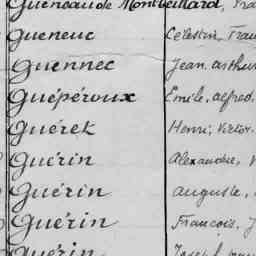 Guéneau de Montbeillard,
Gueneuc Célestin, Fran
Guennec Jean. Arthur
Guépéroux Emile. alfred.
Guéret Henri, Victor.
Guérin Alexandre,
Guérin auguste,
Guérin François, J
Guérin Joseph